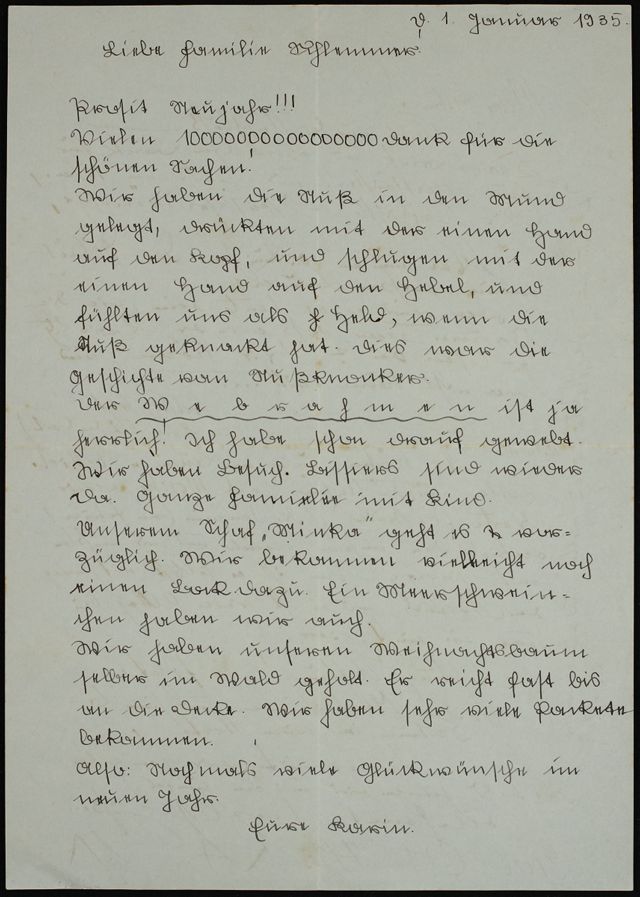 d. 1. Januar 1935.
Liebe Familie Schlemmer!
Prosit Neujahr!!!
Vielen 10000000000000000 dank für die
schönen Sachen!
Wir haben die Nuß in den Mund
gelegt, drückten mit der einen Hand
auf den Kopf, und schlugen mit der
einen Hand auf den Hebel, und
fühlten uns als Held, wenn die
Nuß geknackt hat. Dies war die
Geschichte von Nußknanker.
Der Webrahmen ist ja
herrlich! Ich habe schon drauf gewebt.
Wir haben Besuch. Lassiers sind wieder
da. Ganze Famielie mit Kind.
Unserem Schaf „Minka" geht es vor=
züglich. Wir bekommen vielleicht noch
einen Bock dazu. Ein Meerschwein=
chen haben wir auch.
Wir haben unseren Weihnachtsbaum
selber im Wald geholt. Er reicht fast bis
an die Decke. Wir haben sehr viele Packete
bekommen.
Also: Nochmals viele Glückwünsche im
neuen Jahr.
Eure Karin.